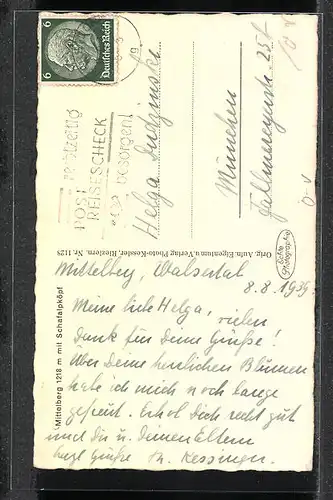 6
6
Deutsches Reich
frühzeitig
POST
REISESCHECK
besorgen!
Helga
München
Orig. Aufn. Eigentum u. Verlag Photo-Kessler, Riezlern. Nr. 1125
Echte
Photographie
Mittelberg 1218 m mit Schafalpköpf
Mittelberg, Walsertal
8.8.1939
Meine liebe Helga, vielen
Dank für Deine Grüße!
Über Deine herrlichen Blumen
habe ich mich noch lange
gefreut. Erhol Dich recht gut
und Du u. Deinen Eltern
herzl Grüße